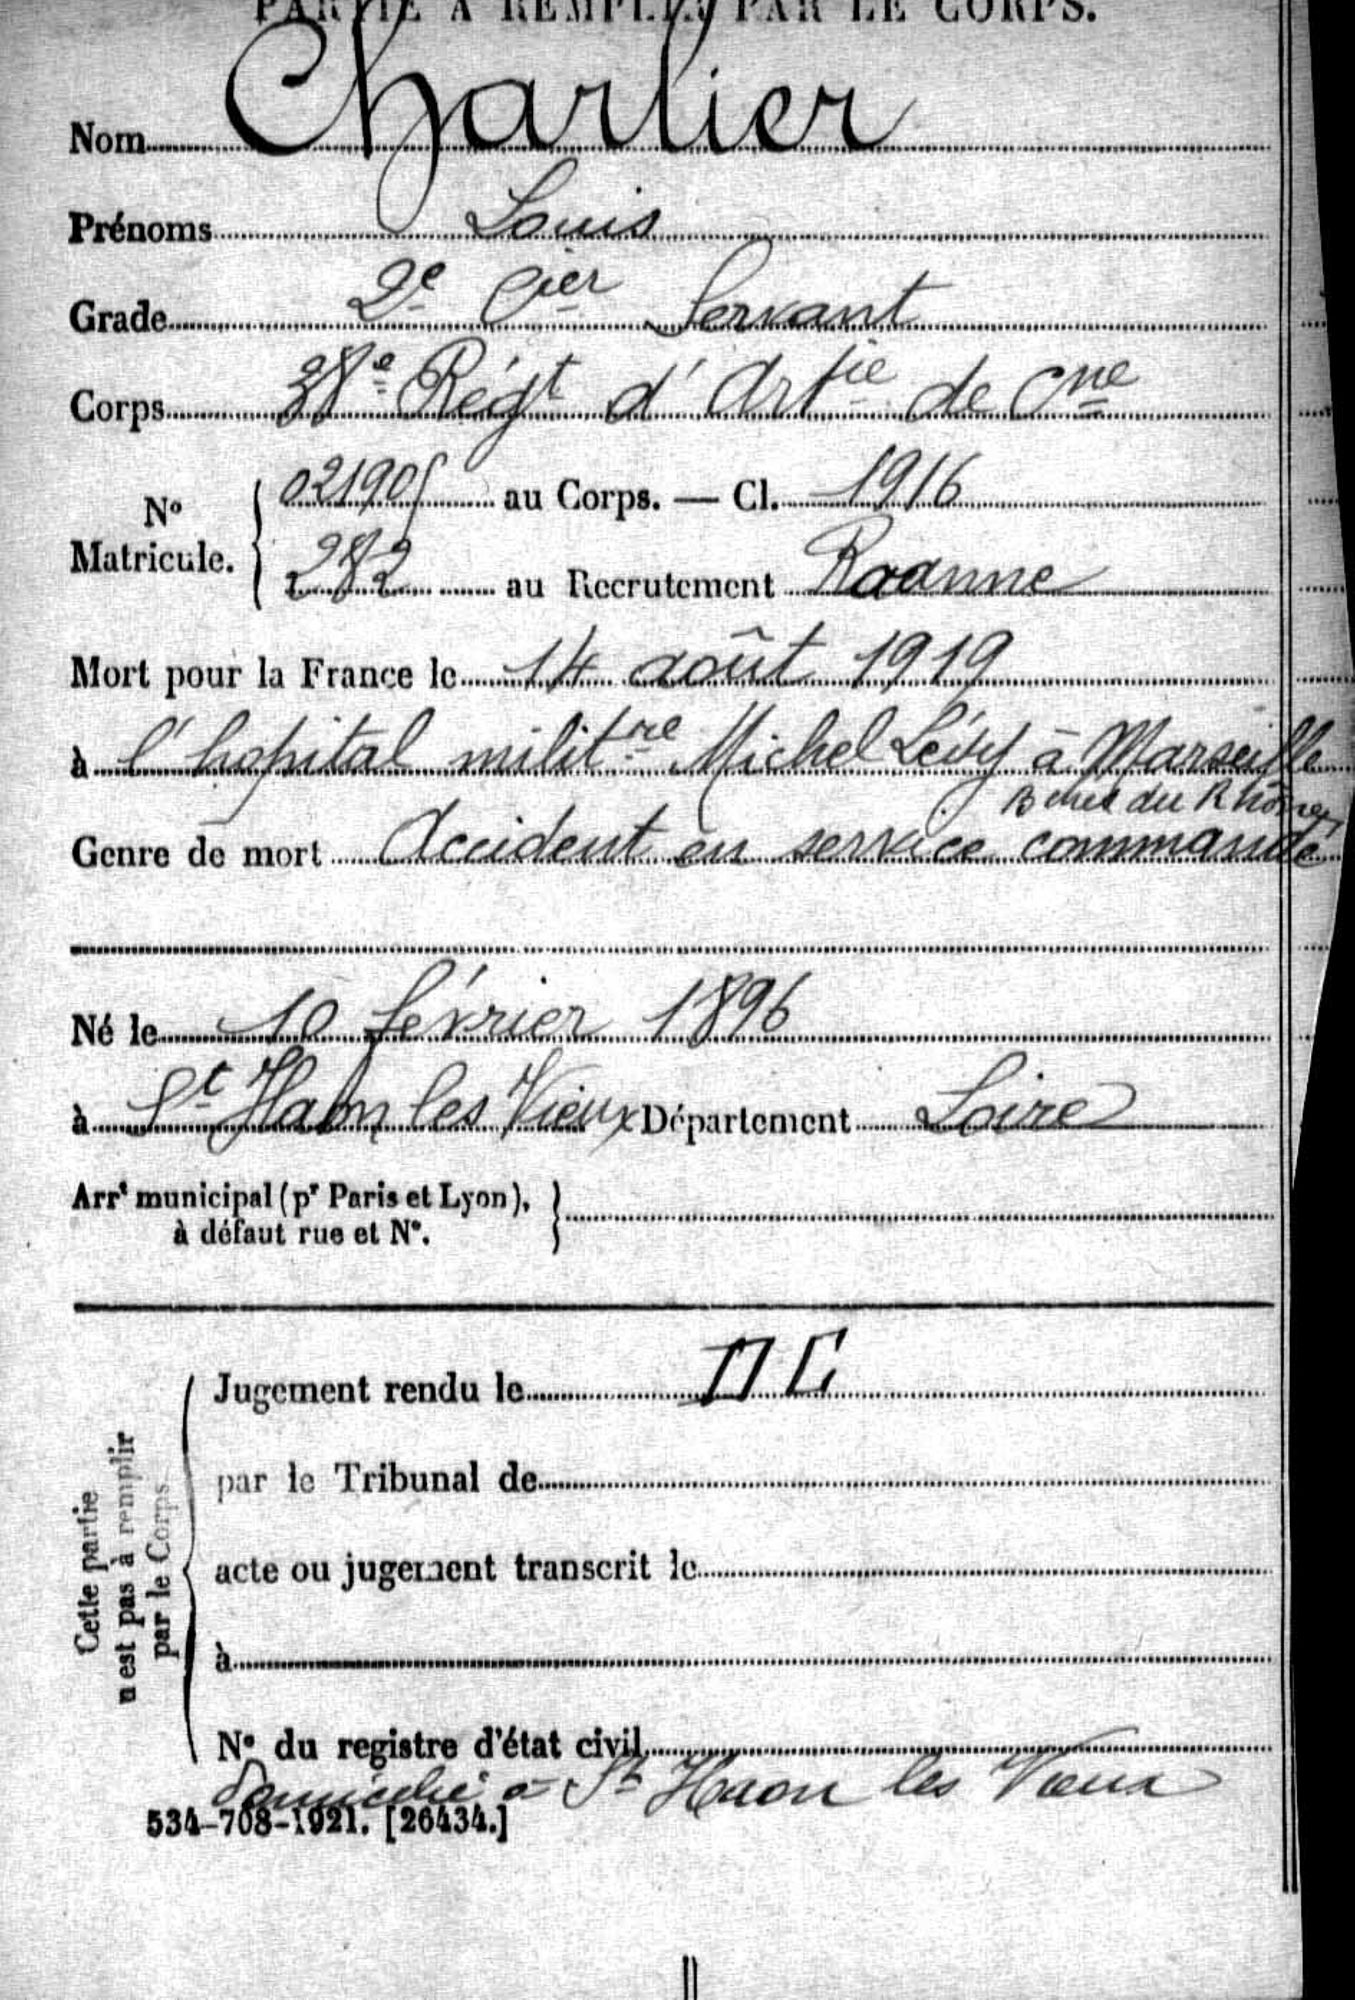 PARTIE À REMPLIR PAR LE CORPS.
Nom Charlier
Prénoms Louis
Grade 2e Cier Servant
Corps 38e Régt d'Artie de Cne
No Matricule. { 021905 au Corps. — Cl. 1916
282 au Recrutement Roanne
Mort pour la France le 14 août 1919
à l'hopital militre Michel Lévy à Marseille
Bches du Rhône
Genre de mort Accident en service commandé
Né le 10 février 1896
à St Haon les Vieux Département Loire
Arrt municipal (pr Paris et Lyon), }
à défaut rue et No.
Cette partie
n'est pas à remplir
par le Corps
Jugement rendu le
par le Tribunal de
acte ou jugement transcrit le
à
No du registre d'état civil
domicilié à St Haon les Vieux
534-708-1921. [26434.]